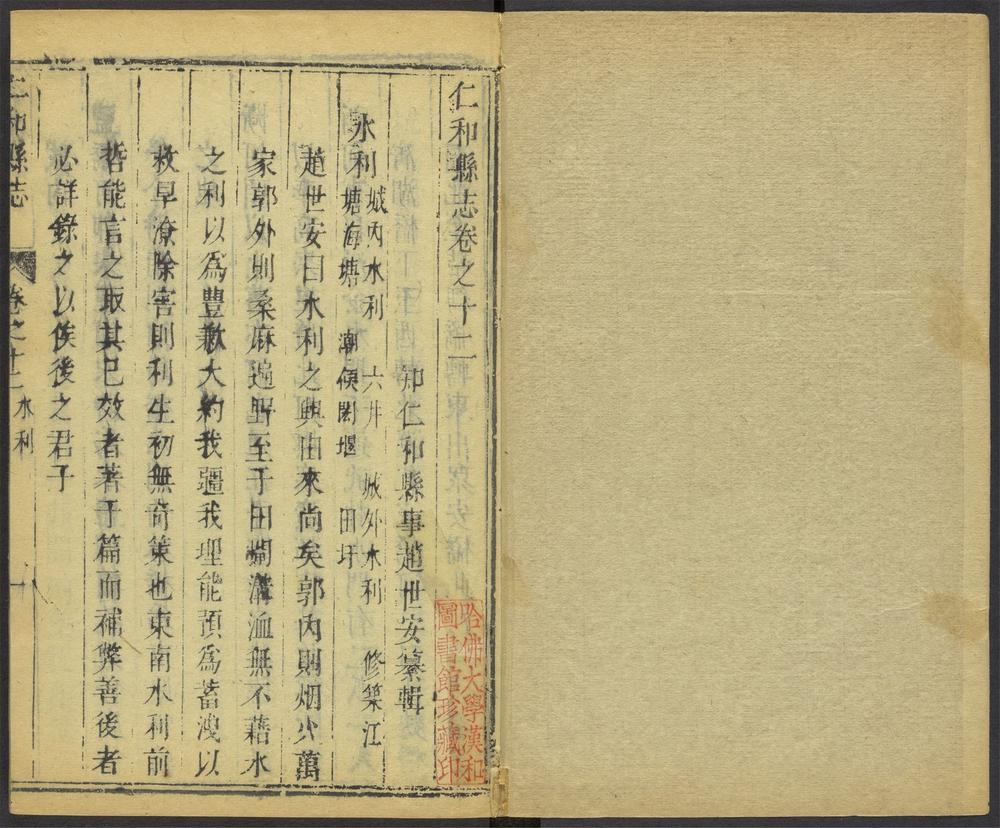 仁和縣志卷之十二
知仁和縣事趙世安纂輯
水利 城內水利 六井 城外水利 修築江
塘海塘 潮候閘堰 田圩
趙世安曰水利之興由來尚矣郭內則烟火萬
家郭外則桑麻遍野至于田蜔溝洫無不藉水
之利以爲豐歉大約我疆我理能預爲蓄洩以
救旱潦除害則利生初無奇策也東南水利前
哲能言之取其已效者著于篇而補弊善後者
必詳錄之以俟後之君子
仁和縣志 卷之十二 水利 一
哈佛大學漢和
圖書館珍藏印